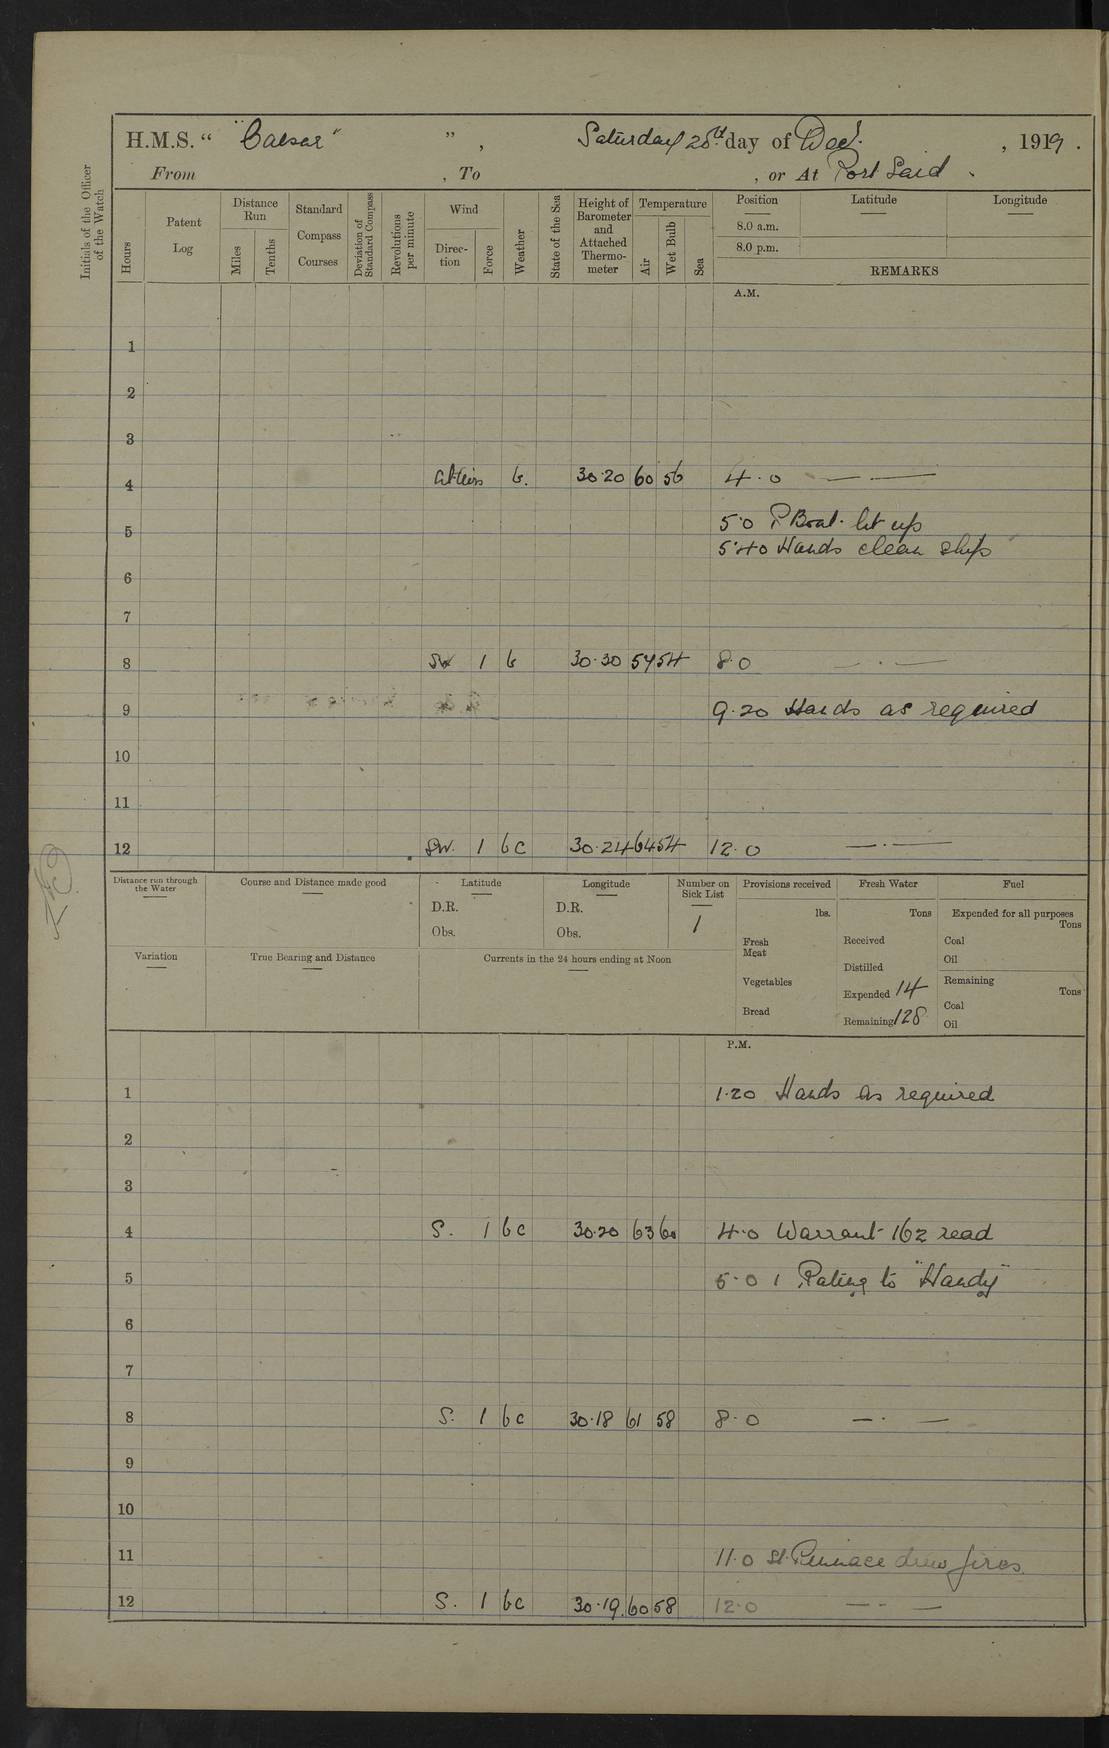 H.M.S. " "Caesar" " , Saturday 20th day of Dec. , 1919 .
From , To , or At Port Said .
Initials of the Officer of the Watch
Hours
Patent Log
Distance Run
Miles
Tenths
Standard Compass Courses
Deviation of Standard Compass
Revolutions per minute
Wind
Direction
Force
Weather
State of the Sea
Height of Barometer and Attached Thermometer
Temperature
Air
Wet Bulb
Sea
Position Latitude Longitude
8.0 a.m.
8.0 p.m.
REMARKS
A.M.
1
2
3
4 b. 30.20 60 56 4.0 — —
5 5.0 P. Boat lit up
5.40 Hands clean ship
6
7
8 SW 1 b 30.30 57 54 8.0 — . —
9 9.20 Hands as required
10
11
12 SW. 1 bc 30.24 64 54 12.0 — . —
Distance run through the Water
Course and Distance made good
Latitude
D.R.
Obs.
Longitude
D.R.
Obs.
Number on Sick List
1
Provisions received
lbs.
Fresh Meat
Vegetables
Bread
Fresh Water
Tons
Received
Distilled
Expended 14
Remaining 128
Fuel
Expended for all purposes
Tons
Coal
Oil
Remaining
Tons
Coal
Oil
Variation
True Bearing and Distance
Currents in the 24 hours ending at Noon
P.M.
1 1.20 Hands as required
2
3
4 S. 1 bc 30.20 63 60 4.0 Warrant 162 read
5 5.0 1 Rating to "Handy"
6
7
8 S. 1 bc 30.18 61 58 8.0 — . —
9
10
11 11.0 St. Pinnace drew fires.
12 S. 1 bc 30.19 60 58 12.0 — - —